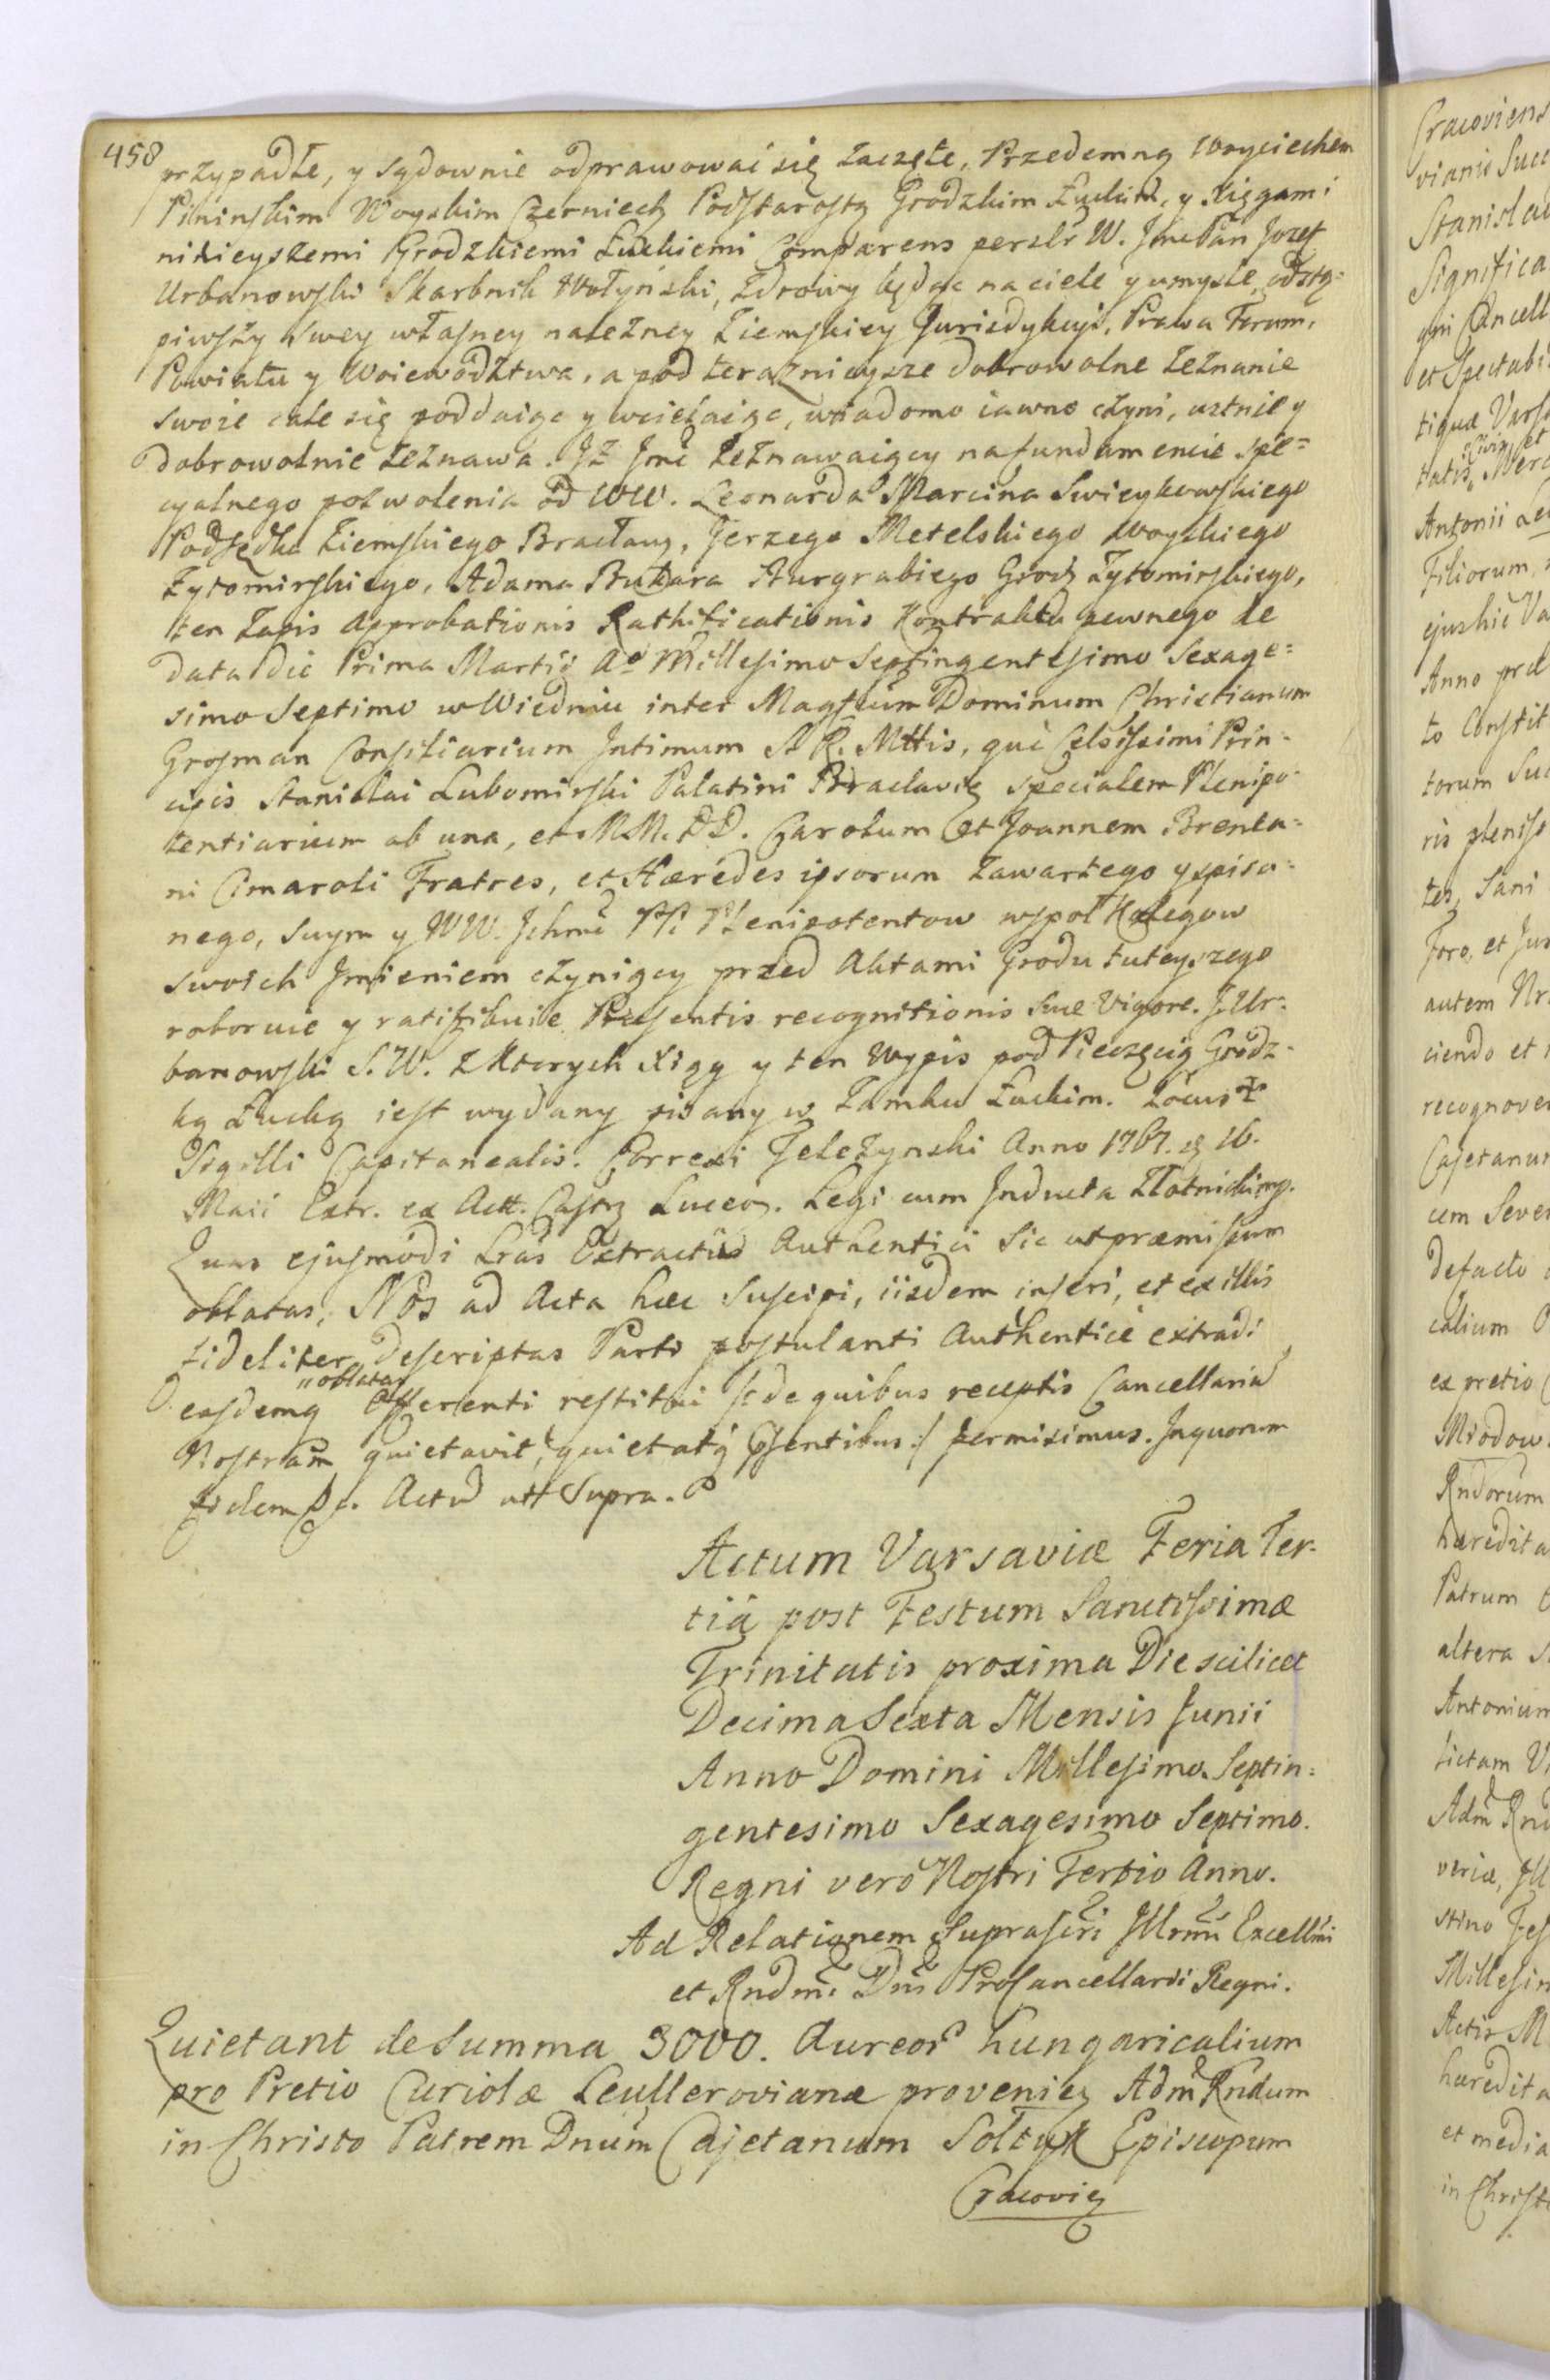 458
przypadłe, y sądownie odprawować się zaczęte, Przedemną Woyciechem
Pinińskim Woyskim Czerniech Podstarostą Grodzkim Łuckim, y Xięgami
ninieyszemi Grodzkiemi Łuckiemi Comparens perslr W. Jmć Pan Jozef
Urbanowski Skarbnik Wołyński, zdrowy będąc na ciele y umysle, odstą=
piwszy swey własney nalezney Ziemskiey Jurisdykcyi, Prawa Forum,
Powiatu y Woiewodztwa, a pod teraznieysze dobrowolne zeznanie
swoie cale się poddaiąc y wcielaiąc, wiadomo iawno czyni, ustnie y
dobrowolnie zeznawa. Jż Jmć Zeznawaiący na fundamencie spe=
cyalnego pozwolenia od WW. Leonarda Marcina Swieykowskiego
Podsędka Ziemskiego Bracław, Jerzego Metelskiego Woyskiego
Zytomirskiego, Adama Bukara Burgrabiego Grodz Zytomirskiego,
ten Zapis Approbationis Rathificationis Kontraktu pewnego de
data die Prima Martii Aō Millesimo Septingentesimo Sexage=
simo Septimo w Wiedniu inter Magfcum Dominum Christianum
Grosman Consiliarium Intimum S. R. Mttis, qui Celsissimi Prin-
cipis Stanislai Lubomirski Palatini Braclavię specialem Plenipo-
tentiarium ab una, et M.M. D.D. Carolum et Joannem Brenta=
ni Cimaroli Fratres, et Hæredes ipsorum zawartego y spisa=
nego, swym y WW. Jchmć PP. Plenipotentow wspoł Kolegow
swoich Jmieniem czyniący przed Aktami Grodu tuteyszego
roboruie y ratifikuie Præsentis recognitionis suæ vigore. J. Ur=
banowski S.W. z Ktorych Xiąg y ten Wypis pod Pieczęcią Grodz-
ką Łucką iest wydany pisany w Zamku Łuckim. Locus
Sigilli Capitanealis. Correxi Jelezynski Anno 1767. 16.
Maii Extr. ex Actt. Castr Luceo. Legi cum Inducta Złotnicki mp.
Quas ejusmodi Lras Extractus Authentici sic ut præmissum
oblatas, Nos ad Acta hæc suscipi, iisdem inseri, et ex illis
fideliter descriptas Parti postulanti Authentice extradi
"oblatas
easdemq Offerenti restitui /: de quibus receptis Cancellariam
Nostram quietavit, quietatq pñsentibus :/ permisimus. In quorum
fidem &c. Actu utt Supra.
Actum Varsaviæ Feria Ter-
tia post Festum Sanctissimæ
Trinitatis proxima Die scilicet
Decima Sexta Mensis Junii
Anno Domini Millesimo Septin=
gentesimo Sexagesimo Septimo.
Regni vero Nostri Tertio Anno.
Ad Relationem Suprascri Jllrmi Excellmi
et Rndmi Dni ProCancellarii Regni.
Quietant de Summa 3000. Aureor hungaricalium
pro Pretio Curiolæ Leulleroviana provenien Adm Rndum
in Christo Patrem Dnum Cajetanum Sołtyk Episcopum
Cracovię
Cracoviens
vianis Succ
Stanislai
Significa
gni Cancell
et Spectabi
tiquæ Varsa
Civi et
tatis, Merc
Antonii Leu
Filiorum
ejuskie Va
Anno præ
to Constit
torum Suc
ris plenisr
tes, Sani
foro, et Jur
autem Nr
ciendo et
recognover
Cajetanum
cem Sever
defacto
calium
ex pretio
Miodow
Rndorum
hæredita
Patrum
altera
Antonium
lictam
Adm Rnd
veriæ, Jll
stino Fes
Millesim
Actis M
hæredita
et media
in Christ